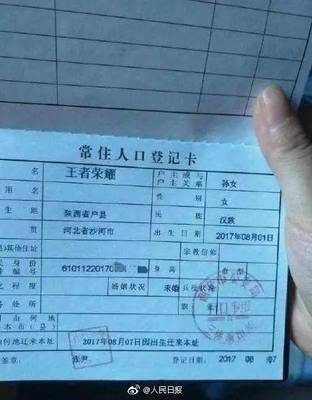 常住人口登记卡
王者荣耀 户主或与户主关系 孙女
用名 性别 女
生地 陕西省户县 民族 汉族
河北省沙河市 出生日期 2017年08月01日
其他住址 宗教信仰
身份编号 6101122017 身高 血型
化程度 婚姻状况 未婚 兵役状况
务处所
由何地本市(县)
何地迁来本址 2017年08月07日因出生迁来本址
签章: 登记日期: 2017 08 07
@人民日报